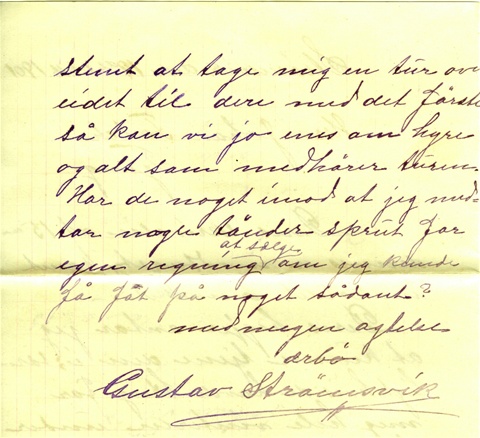 stemt at tage mig en tur ove
eidet til dere med det förste
så kan vi jo enes om hyre
og alt som medhörer turen.
Har de noget imod at jeg med-
tar nogle tönder sprut for
at sælge
egen regning om jeg kunde
få fåt på noget sådant?
med megen agtelse
ærbö
Gustav Strömsvik